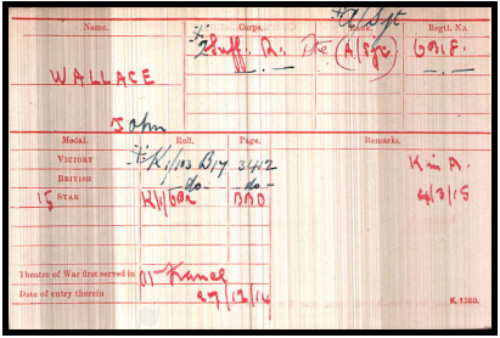 # A/Sjt
Name. Corps. Rank. Regtl. No.
# 2 Suff. R. Pte (A/Sjt) 6818.
WALLACE
John
Medal. Roll. Page. Remarks.
VICTORY # K1/103 B17 3412 K in A.
BRITISH do do 4/3/15
15 STAR
Theatre of War first served in 01 France
Date of entry therein 27/12/14
K. 1380.